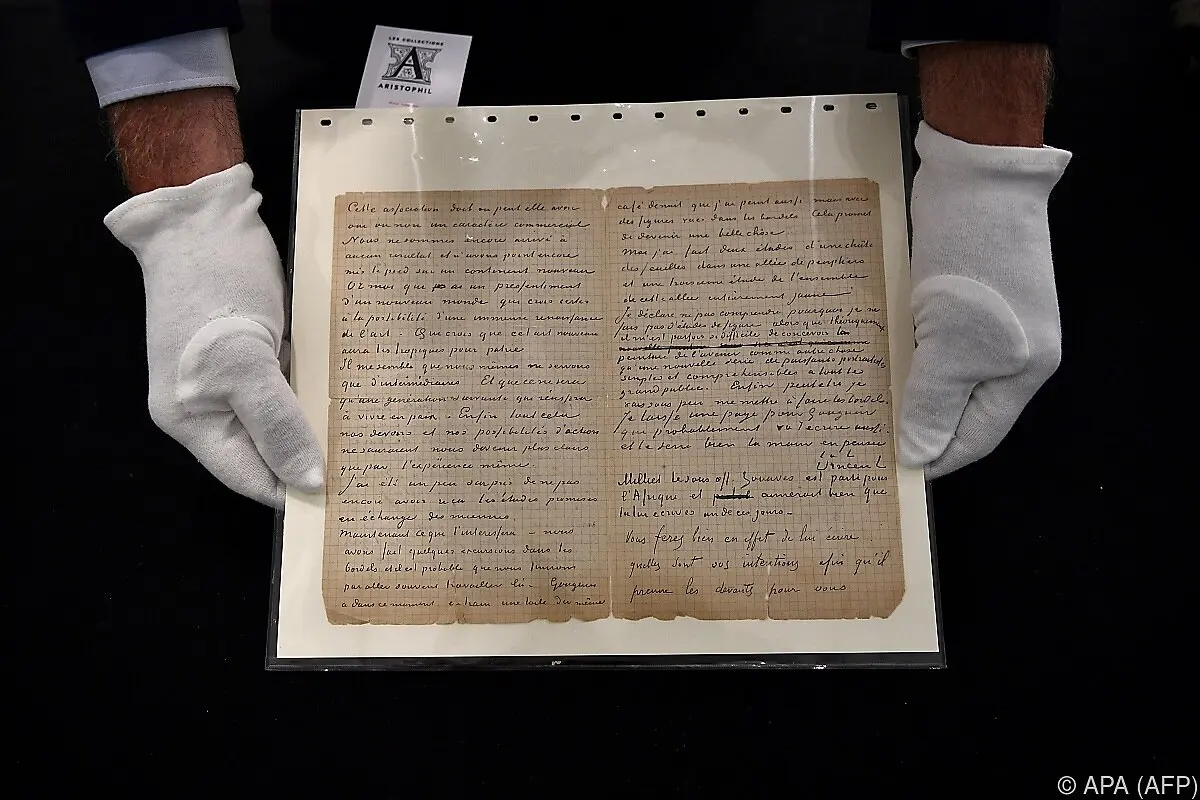 LES COLLECTIONS
A
ARISTOPHIL
Cette association doit ou peut elle avoir
oui ou non un caractère commercial
Nous ne sommes encore arrivé à
aucun resultat et n'avons point encore
mis le pied sur un continent nouveau
Or moi que ai un presentiment
d'un nouveau monde qui crois certes
à la possibilité d'une immense renaissance
de l'art. Qui crois que cet art nouveau
aura les tropiques pour patrie
Il me semble que nous mêmes ne servons
que d'intermediaires Et que ce ne sera
qu'une génération suivante qui reussira
à vivre en paix. Enfin tout cela
nos devoirs et nos possibilités d'action
ne sauraient nous devenir plus clairs
que par l'expérience même.
J'ai été un peu surpris de ne pas
encore avoir reçu les études promises
en échange des miennes.
Maintenant ce que t'interessera – nous
avons fait quelques excursions dans les
bordels et il est probable que nous finirons
par aller souvent travailler là – Gauguin
a dans ce moment en train une toile du même
café de nuit que j'ai peint aussi mais avec
des figures vues dans les bordels Cela promet
de devenir une belle chose
Moi j'ai fait deux études d'une chûte
des feuilles dans une allée de peupliers
et une troisieme étude de l'ensemble
de cette allée entièrement jaune
Je déclare ne pas comprendre pourquoi je ne
fais pas d'études de figure alors que théoriquement
il m'est parfois si difficile de concevoir la
peinture de l'avenir comme autre chose
qu'une nouvelle serie de puissants portraitistes
simples et comprehensibles a tout le
grand public. Enfin peut etre je
vais sous peu me mettre à faire les bordel.
Je laisse une page pour Gauguin
qui probablement va t'ecrire aussi
et te serre bien la main en pensée
t. à t.
Vincent
Milliet le sous off. Zouaves est parti pour
l'Afrique et aimerait bien que
tu lui ecrives un de ces jours –
Vous ferez bien en effet de lui écrire
quelles sont vos intentions afin qu'il
prenne les devants pour vous
© APA (AFP)